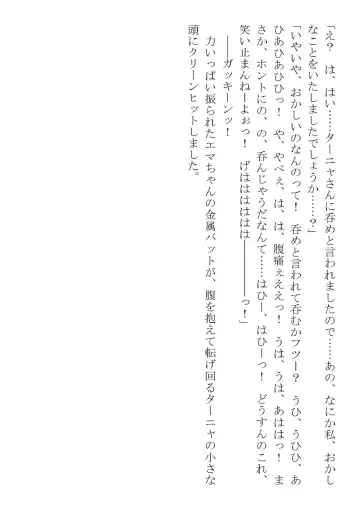 「え？　は、はい……ターニャさんに呑めと言われましたので……あの、なにか私、おかし
なことをいたしましたでしょうか……？」
「いやいや、おかしいのなんのって！　呑めと言われて呑むかフツー？　うひ、うひひ、あ
ひあひあひひっ！　や、やべぇ、は、は、腹痛ぇええっ！　うは、うは、あははっ！　ま
さか、ホントにの、の、呑んじゃうだなんて……はひー、はひーっ！　どうすんのこれ、
笑い止まんねーよぉっ！　げはははははは――――――っ！」
――ガッキーンッ！
　力いっぱい振られたエマちゃんの金属バットが、腹を抱えて転げ回るターニャの小さな
頭にクリーンヒットしました。